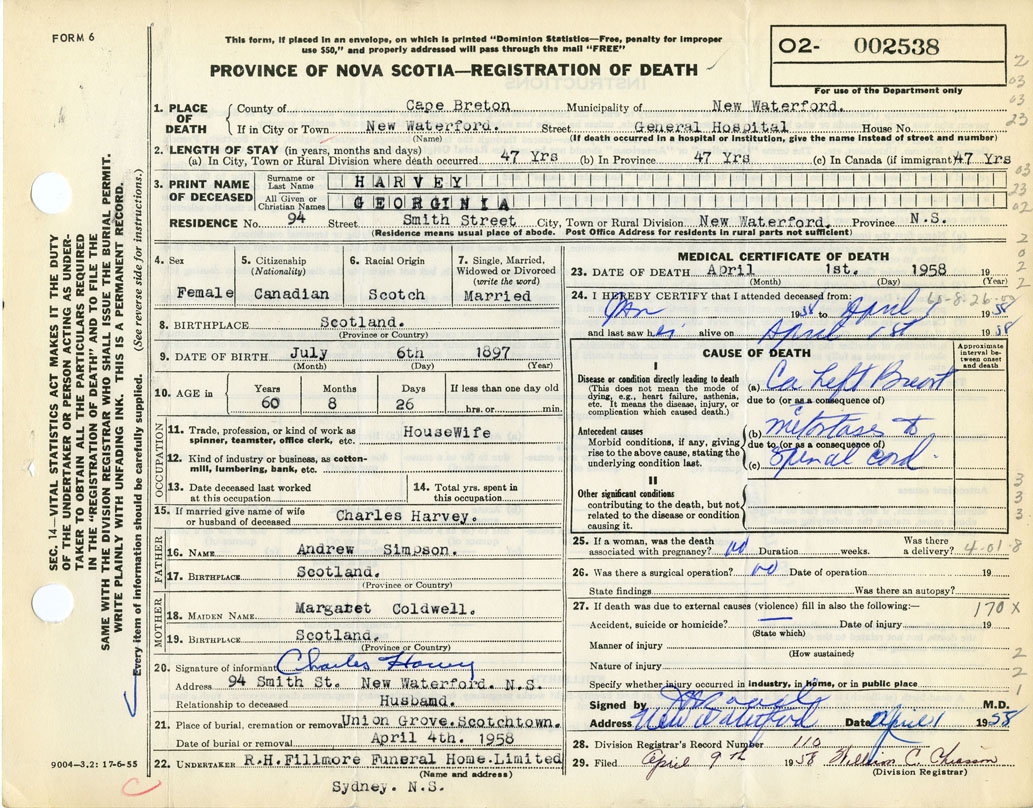 FORM 6
This form, if placed in an envelope, on which is printed "Dominion Statistics—Free, penalty for improper
use $50," and properly addressed will pass through the mail "FREE"
PROVINCE OF NOVA SCOTIA—REGISTRATION OF DEATH
02- 002538
For use of the Department only
SEC. 14—VITAL STATISTICS ACT MAKES IT THE DUTY
OF THE UNDERTAKER OR PERSON ACTING AS UNDER-
TAKER TO OBTAIN ALL THE PARTICULARS REQUIRED
IN THE "REGISTRATION OF DEATH" AND TO FILE THE
SAME WITH THE DIVISION REGISTRAR WHO SHALL ISSUE THE BURIAL PERMIT.
WRITE PLAINLY WITH UNFADING INK. THIS IS A PERMANENT RECORD.
Every item of information should be carefully supplied. (See reverse side for instructions.)
1. PLACE OF DEATH County of Cape Breton Municipality of New Waterford.
If in City or Town New Waterford. Street General Hospital House No.
(Name) (If death occurred in a hospital or institution, give the name instead of street and number)
2. LENGTH OF STAY (in years, months and days)
(a) In City, Town or Rural Division where death occurred 47 Yrs (b) In Province 47 Yrs (c) In Canada (if immigrant) 47 Yrs
3. PRINT NAME OF DECEASED Surname or Last Name HARVEY
All Given or Christian Names GEORGINIA
RESIDENCE No. 94 Street Smith Street City, Town or Rural Division New Waterford. Province N.S.
(Residence means usual place of abode. Post Office Address for residents in rural parts not sufficient)
4. Sex Female
5. Citizenship (Nationality) Canadian
6. Racial Origin Scotch
7. Single, Married, Widowed or Divorced (write the word) Married
8. BIRTHPLACE Scotland.
(Province or Country)
9. DATE OF BIRTH July 6th 1897
(Month) (Day) (Year)
10. AGE in Years 60 Months 8 Days 26 If less than one day old hrs. or min.
OCCUPATION
11. Trade, profession, or kind of work as spinner, teamster, office clerk, etc. HouseWife
12. Kind of industry or business, as cotton-mill, lumbering, bank, etc.
13. Date deceased last worked at this occupation
14. Total yrs. spent in this occupation
15. If married give name of wife or husband of deceased Charles Harvey.
FATHER
16. NAME Andrew Simpson.
17. BIRTHPLACE Scotland.
(Province or Country)
MOTHER
18. MAIDEN NAME Margaret Coldwell.
19. BIRTHPLACE Scotland.
(Province or Country)
20. Signature of informant Charles Harvey
Address 94 Smith St. New Waterford. N.S.
Relationship to deceased Husband.
21. Place of burial, cremation or removal Union Grove. Scotchtown.
Date of burial or removal April 4th. 1958
22. UNDERTAKER R.H. Fillmore Funeral Home. Limited
(Name and address)
Sydney. N.S.
9004—3.2: 17-6-55
MEDICAL CERTIFICATE OF DEATH
23. DATE OF DEATH April 1st. 1958 19
(Month) (Day) (Year)
24. I HEREBY CERTIFY that I attended deceased from:
Jan 1958 to April 1 1958
and last saw her alive on April 1st 1958
CAUSE OF DEATH
Approximate interval between onset and death
I
Disease or condition directly leading to death
(This does not mean the mode of dying, e.g., heart failure, asthenia, etc. It means the disease, injury, or complication which caused death.)
(a) Ca Left Breast
due to (or as a consequence of)
Antecedent causes
Morbid conditions, if any, giving rise to the above cause, stating the underlying condition last.
(b)
due to (or as a consequence of)
(c) Spinal cord.
II
Other significant conditions
contributing to the death, but not related to the disease or condition causing it.
25. If a woman, was the death associated with pregnancy? no Duration weeks. Was there a delivery? 4-01-8
26. Was there a surgical operation? no Date of operation 19
State findings Was there an autopsy?
27. If death was due to external causes (violence) fill in also the following:— 170 X
Accident, suicide or homicide? — Date of injury 19
(State which)
Manner of injury
(How sustained)
Nature of injury
Specify whether injury occurred in industry, in home, or in public place
Signed by M.D.
Address New Waterford Date April 1 1958
28. Division Registrar's Record Number 110
29. Filed April 9th 1958 William C. Chiasson
(Division Registrar)